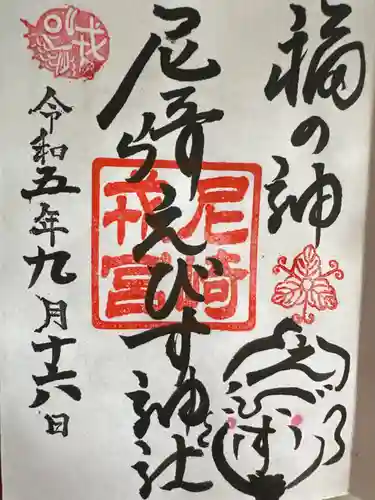 福の神
尼崎えびす神社
尼崎戎宮
令和五年九月十六日